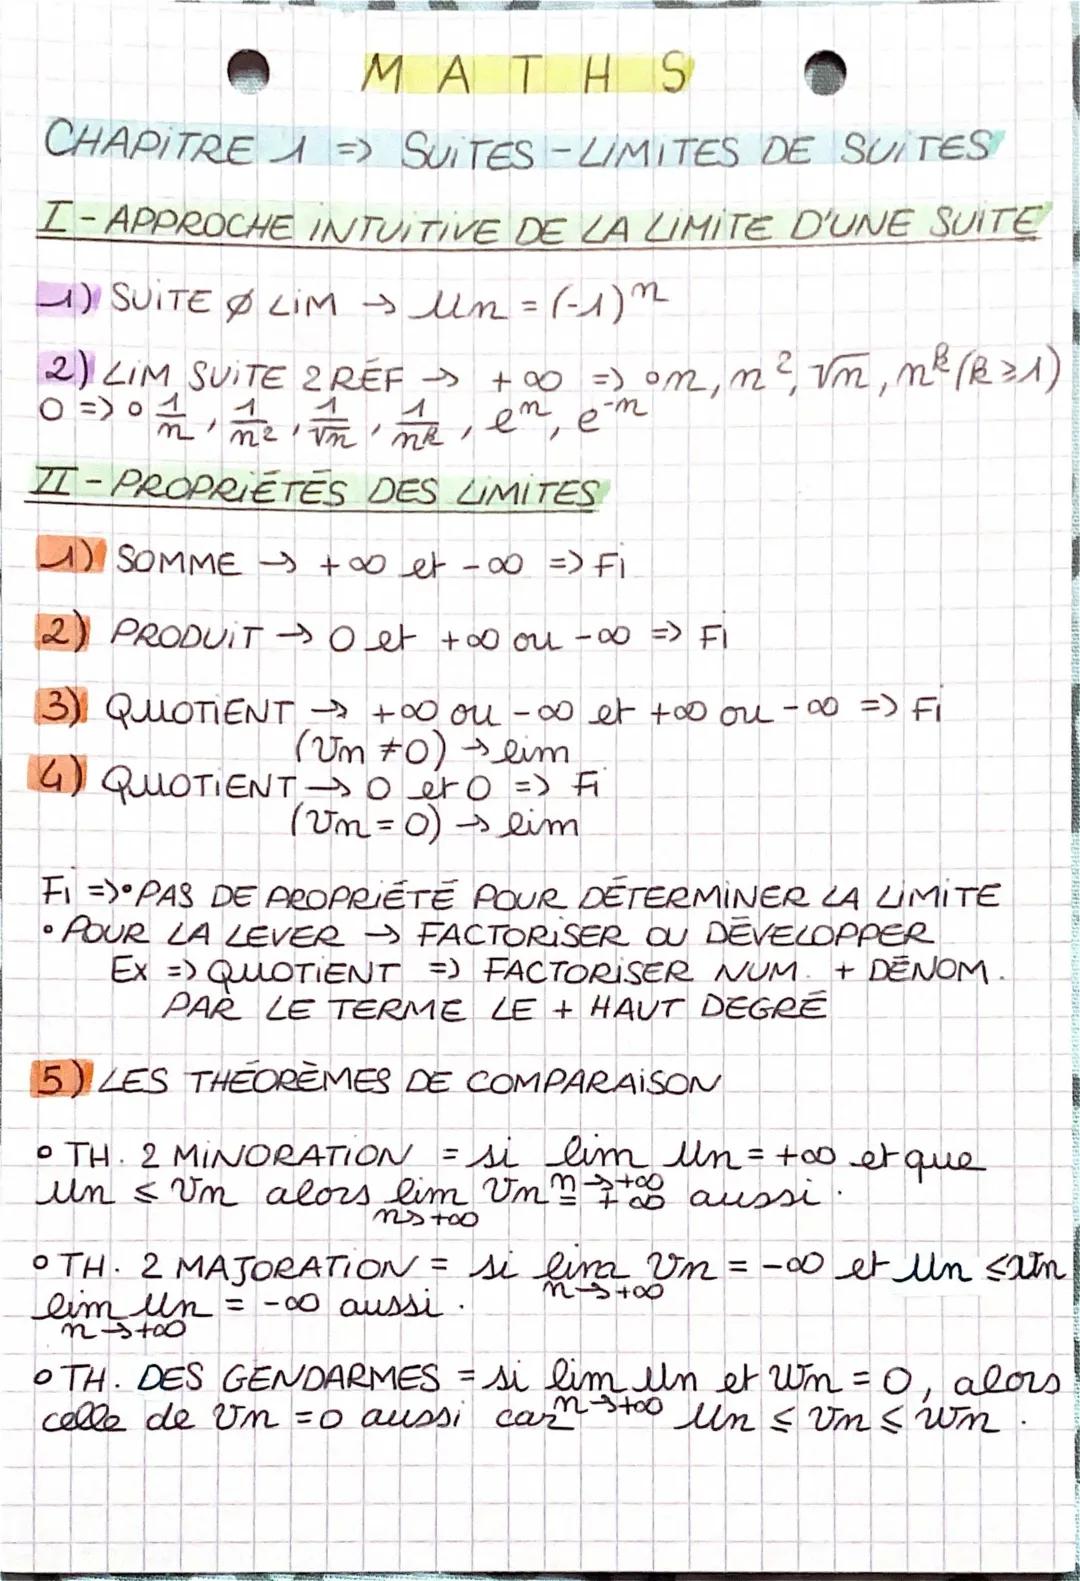 MATHS
CHAPITRE 1 => SUITES - LIMITES DE SUITES
I - APPROCHE INTUITIVE DE LA LIMITE D'UNE SUITE
1) SUITE Ø LIM → Un = (-1)^n
2) LIM SUITE 2 RÉF → +∞ => ∘n, n², √n, n^k (k≥1)
0 => ∘ 1/n, 1/n², 1/√n, 1/n^k, e^n, e^-n
II - PROPRIÉTÉS DES LIMITES
1) SOMME → +∞ et -∞ => Fi
2) PRODUIT → 0 et +∞ ou -∞ => Fi
3) QUOTIENT → +∞ ou -∞ et +∞ ou -∞ => Fi
(Vn ≠ 0) → lim
4) QUOTIENT → 0 et 0 => Fi
(Vn = 0) → lim
Fi => • PAS DE PROPRIÉTÉ POUR DÉTERMINER LA LIMITE
• POUR LA LEVER → FACTORISER OU DÉVELOPPER
Ex => QUOTIENT => FACTORISER NUM. + DÉNOM.
PAR LE TERME LE + HAUT DEGRÉ
5) LES THÉORÈMES DE COMPARAISON
∘ TH. 2 MINORATION = si lim Un = +∞ et que
n→+∞
Un ≤ Vn alors lim Vn = +∞ aussi.
n→+∞
∘ TH. 2 MAJORATION = si lim Vn = -∞ et Un ≤ Vn
n→+∞
lim Un = -∞ aussi.
n→+∞
∘ TH. DES GENDARMES = si lim Un et Wn = 0, alors
n→+∞
celle de Vn = 0 aussi car Un ≤ Vn ≤ Wn.